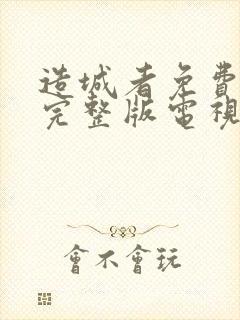 造城者免費
完整版電視
會不會玩